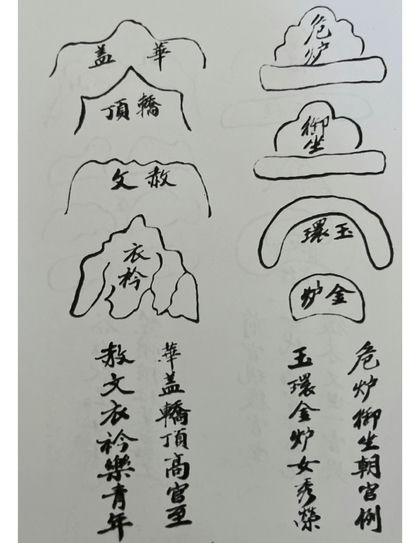 危炉
御坐
玉環
金炉
華盖
轎頂
赦文
衣衿
危炉御坐朝官例
玉環金炉女秀榮
華盖轎頂高官至
赦文衣衿樂青年